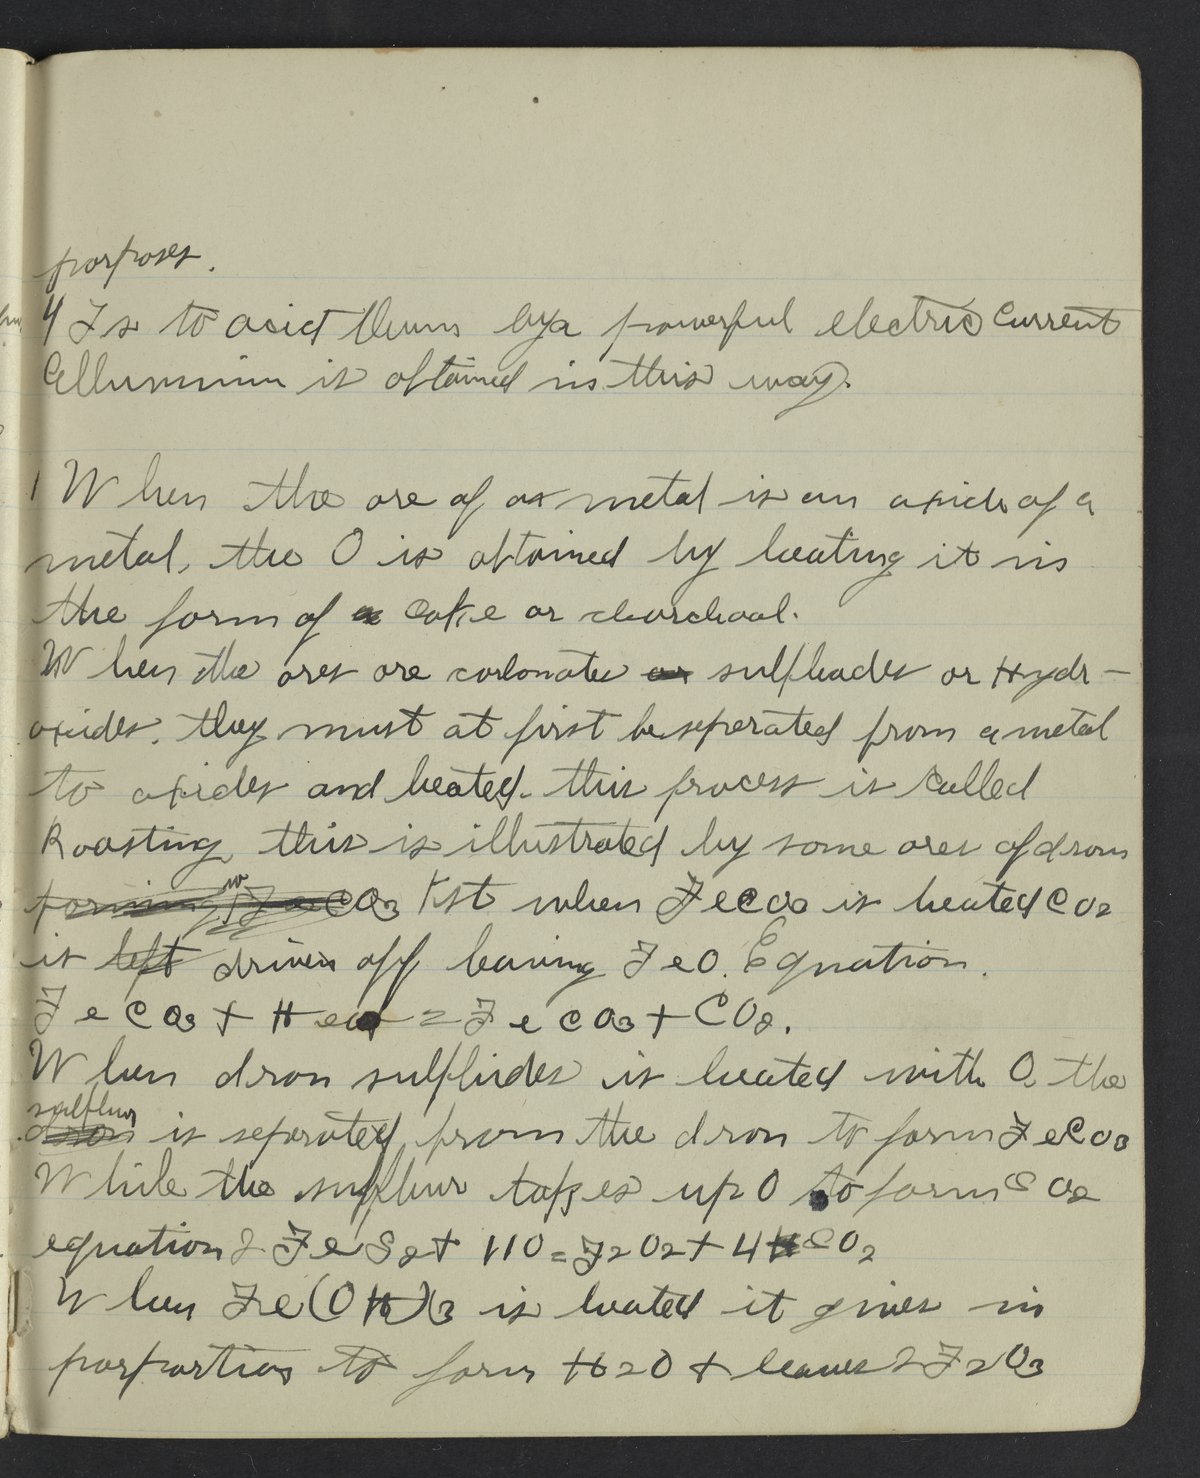 porposes.
4 Is to acid them by a powerful electric current
Allumnium is obtained in this way.
1 When the ore of a metal is an oxide of a
metal, the O is obtained by heating it in
the form of a coke or charchoal.
When the ores are carbonates or sulphades or Hydr-
oxides. they must at first be seperated from a metal
to oxides and heated. this process is called
Roasting this is illustrated by some ores of Iron
forming CO3 1st when FeCO3 is heated CO2
is left driven off leaving FeO. Equation.
FeCO3 + Heat = FeCO3 + CO2.
When Iron sulphides is heated with O the
sulphur
Iron is seperated from the Iron to form FeCO3
While the sulphur takes up O to form SO2
equation 2 FeS2 + 11O = F2O2 + 4 SO2
When Fe(OH)3 is heated it gives in
porportion to form H2O + leaves 2 F2O3